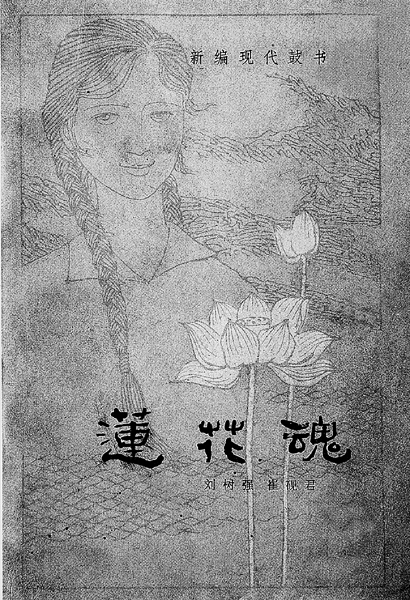 新编现代鼓书
蓮花魂
刘树强 崔砚君